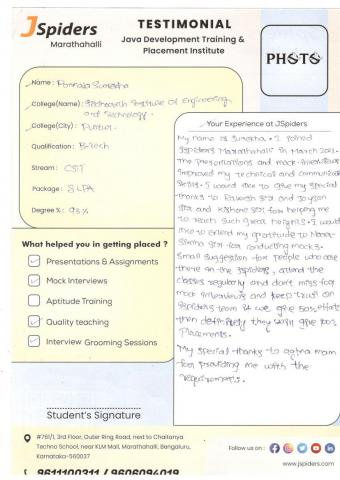 JSpiders
Marathahalli
TESTIMONIAL
Java Development Training &
Placement Institute
PHOTO
Name: Surekha
College(Name): Institute of Engineering
and Technology.
College(City): Puttur.
Qualification: B-Tech
Stream: CSIT
Package: LPA
Degree %: 93%
What helped you in getting placed ?
Presentations & Assignments
Mock Interviews
Aptitude Training
Quality teaching
Interview Grooming Sessions
Student's Signature
Your Experience at JSpiders
My name is Surekha. I joined
Jspiders Marathahalli in March 2023.
The presentations and mock interviews
improved my technical and communication
skills. I would like to give my special
thanks to sir and
sir and Kishore sir for helping me
to reach such great heights. I would
like to extend my gratitude to
sir for conducting mocks.
Small suggestion for people who are
there in the jspiders, attend the
classes regularly and don't miss any
mock interviews and keep trust on
jspiders team if we give 50% efforts
then definitely they will give 50%
placements.
My special thanks to mam
for providing me with the
requirements.
#761/1, 3rd Floor, Outer Ring Road, next to Chaitanya
Techno School, near KLM Mall, Marathahalli, Bengaluru,
Karnataka-560037
Follow us on :
www.jspiders.com
9611100311 / 9606094019